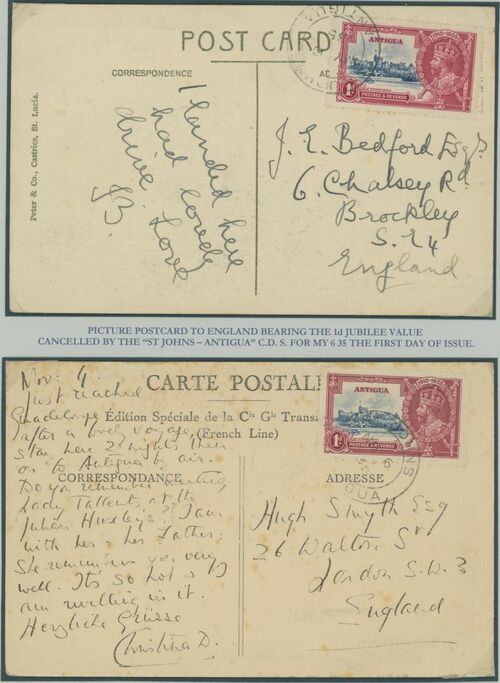 POST CARD
CORRESPONDENCE
Peter & Co., Castries, St. Lucia.
I landed here
had lovely
drive. Love
ANTIGUA
1910-1935
ANTIGUA
1D
POSTAGE & REVENUE
J. E. Bedford Esq.
6. Chalsey Rd
Brockley
S.E 4
England
PICTURE POSTCARD TO ENGLAND BEARING THE 1d JUBILEE VALUE
CANCELLED BY THE "ST JOHNS – ANTIGUA" C.D. S. FOR MY 6 35 THE FIRST DAY OF ISSUE.
CARTE POSTALE
Édition Spéciale de la Cie Gle Transa
(French Line)
CORRESPONDANCE
ADRESSE
Nov. 4.
Just reached
Guadeloupe
after a voyage,
stay here 2 nights then
on to Antigua by air.
Do you remember meeting
Lady Tallents, at the
Julian Huxleys? I am
with her & her father;
She remembers you very
well. It's so hot I
am melting in it.
Herzliche Grüsse
Christina D.
1910-1935
ANTIGUA
1D
POSTAGE & REVENUE
Hugh Smyth Esq
26 Walton St
London S.W. 3
England